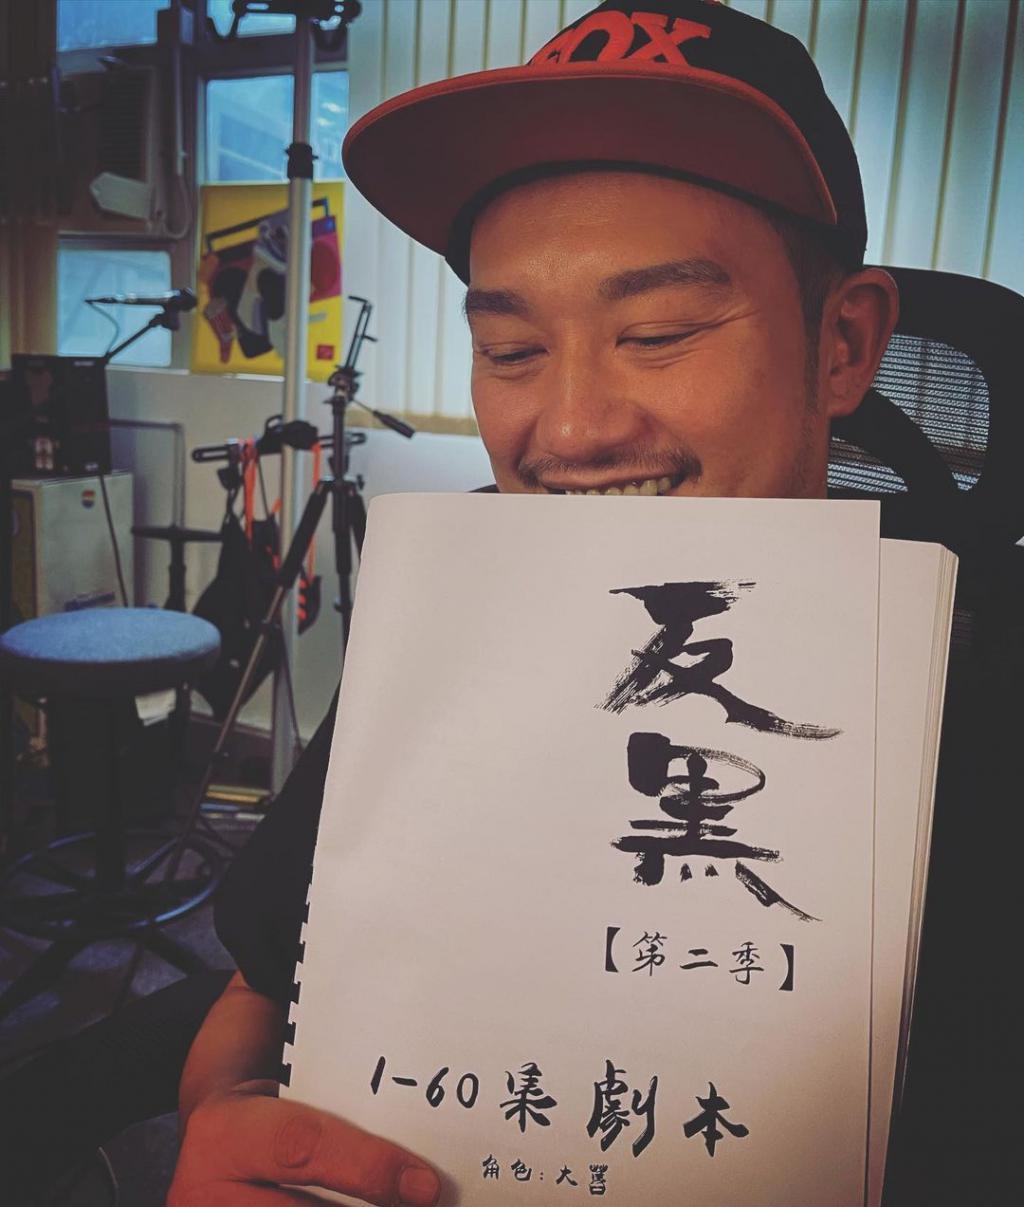 FOX
反黑
【第二季】
1-60集劇本
角色:大